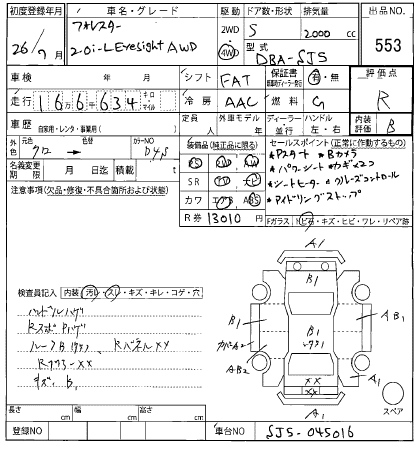 初度登録年月 車名・グレード 駆動 ドア数・形状 排気量 出品NO.
26/9月 フォレスター 2WD 5 2000 cc 553
2.0i-L EyeSight AWD 4WD 型式 DBA-SJ5
車検 年 月 シフト FAT 保証書 有・無 評価点
走行 166634 キロ マイル 冷房 AAC 燃料 G R
車歴 自家用・レンタ・事業用( ) 定員 人 外車モデル 年 ディーラー 並行 ハンドル 左・右 内装評価 B
外色 元色 クロ 色替 カラーNO D4S 装備品(純正品に限る) セールスポイント(正常に作動するもの)
PS PW AW *Pスタート *Bカメラ
名義変更期限 月 日迄 積載 t SR *パワーシート
注意事項(欠品・修復・不具合箇所および状態) *シートヒーター *クルーズコントロール
カワ エアB ABS *アイドリングストップ
R券 13010 円 Fガラス トビ石・キズ・ヒビ・ワレ・リペア跡
A1
B1
検査員記入 内装 汚レ・スレ・キズ・キレ・コゲ・穴
ハンドルハゲ B1 B1 AB1
ルーフB RパネルXX
AB2 XX A1
キズ・B XX
A1 スペア
長さ cm 幅 cm 高さ cm
登録NO 車台NO SJ5-045016